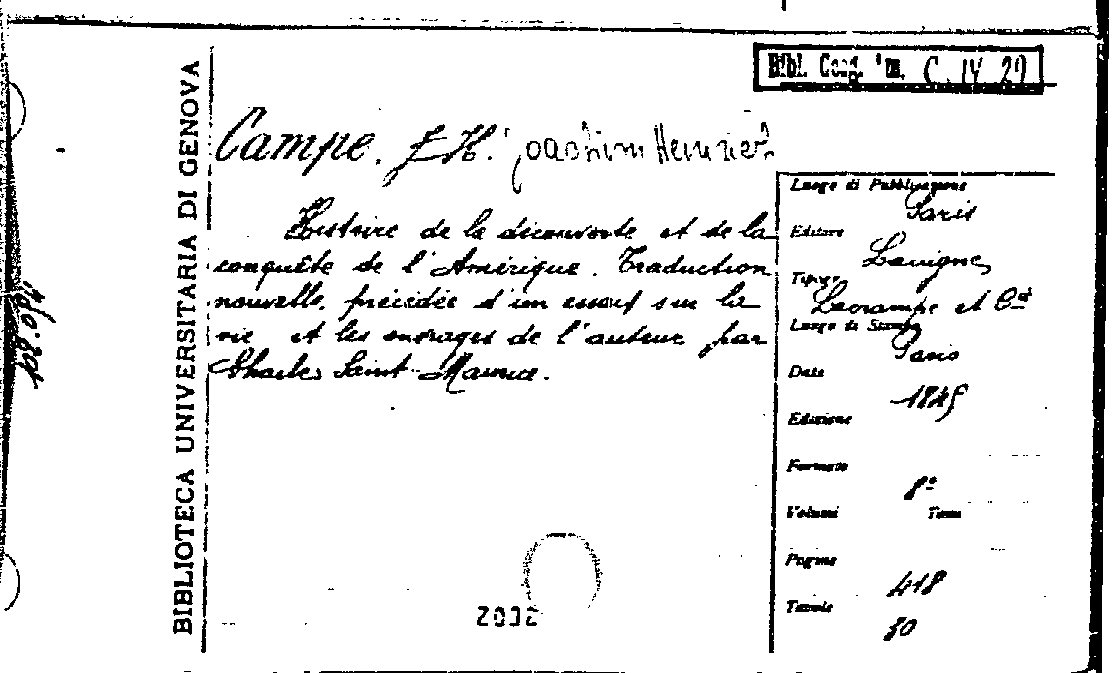 Bibl. C. IV 29
BIBLIOTECA UNIVERSITARIA DI GENOVA
Campe, J. H. Joachim Heinrich
Histoire de la découverte et de la
conquête de l'Amérique. Traduction
nouvelle, précédée d'un essai sur la
vie et les ouvrages de l'auteur par
Charles Saint-Maurice.
Luogo di Pubblicazione
Paris
Editore
Lavigne
Tipogr.
Lacrampe et C.
Luogo di Stampa
Paris
Data
1845
Edizione
Formato
8°
Volumi Tomi
Pagine
418
Tavole
2002